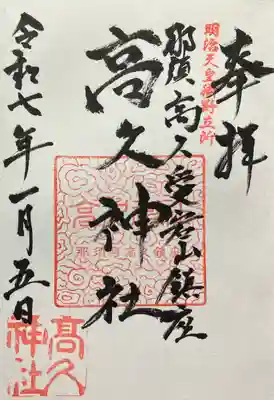 奉拝
明治天皇御野立所
那須高久愛宕山鎮座
高久神社
令和七年一月五日
高久
神社